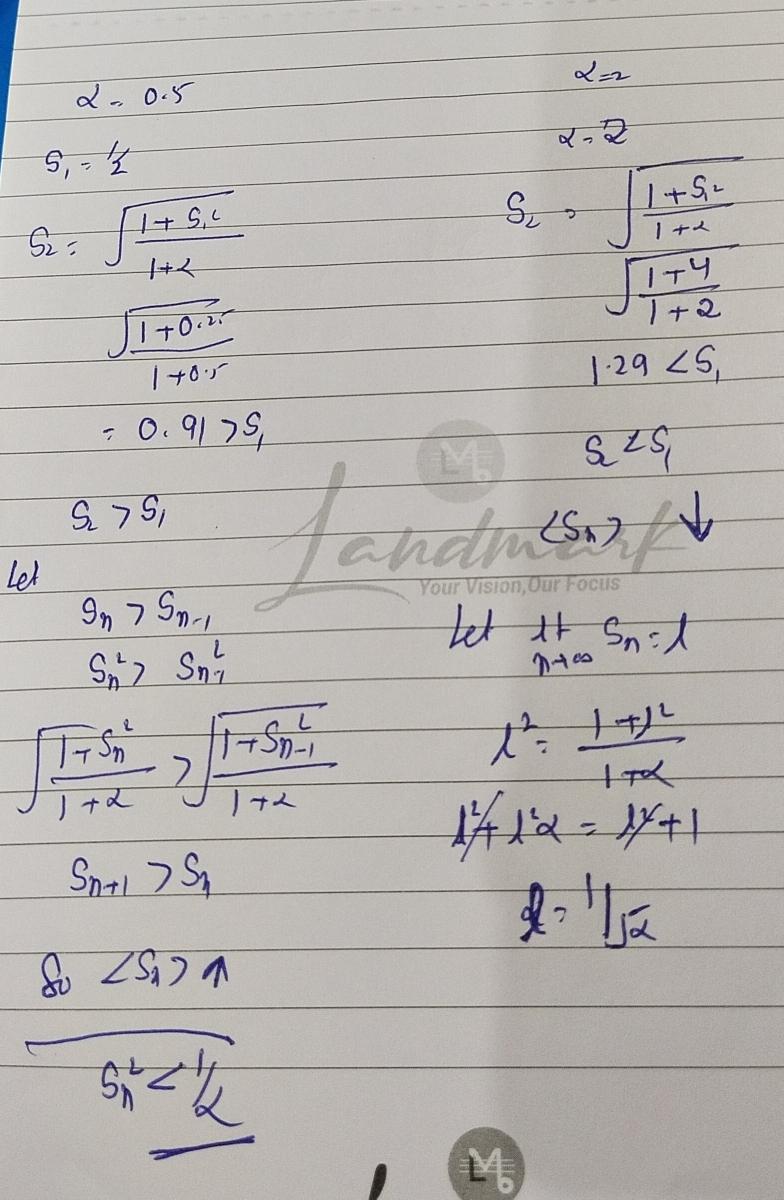 α = 0.5
S₁ = 1/2
S₂ = √((1+S₁²)/(1+α))
√((1+0.25)/(1+0.5))
= 0.91 > S₁
S₂ > S₁
Let
Sn > Sn-1
Sn² > Sn-1²
√((1+Sn²)/(1+α)) > √((1+Sn-1²)/(1+α))
Sn+1 > Sn
So <Sn> ↑
Sn² < 1/α
α=2
α=2
S₂ = √((1+S₁²)/(1+α))
√((1+4)/(1+2))
1.29 < S₁
S₂ < S₁
<Sn> ↓
Let lt n→∞ Sn = l
l² = (1+l²)/(1+α)
l² + l²α = l² + 1
l = 1/√α
Landmark
Your Vision, Our Focus